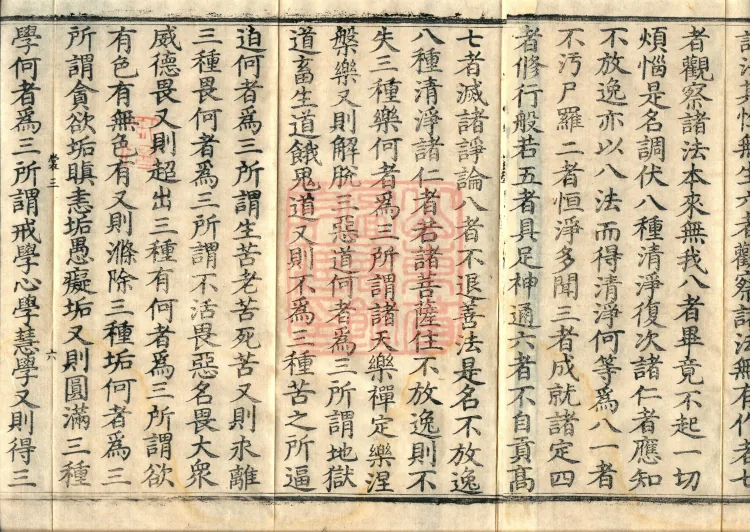 諸法其性無生六者觀察諸法無有作者七
者觀察諸法本來無我八者畢竟不起一切
煩惱是名調伏八種清淨復次諸仁者應知
不放逸亦以八法而得清淨何等為八一者
不污尸羅二者恒淨多聞三者成就諸定四
者修行般若五者具足神通六者不自貢高
七者滅諸諍論八者不退善法是名不放逸
八種清淨諸仁者若諸菩薩住不放逸則不
失三種樂何者為三所謂諸天樂禪定樂涅
槃樂又則解脫三惡道何者為三所謂地獄
道畜生道餓鬼道又則不為三種苦之所逼
迫何者為三所謂生苦老苦死苦又則永離
三種畏何者為三所謂不活畏惡名畏大衆
威德畏又則超出三種有何者為三所謂欲
有色有無色有又則滌除三種垢何者為三
所謂貪欲垢瞋恚垢愚癡垢又則圓滿三種
裳三 六
學何者為三所謂戒學心學慧學又則得三